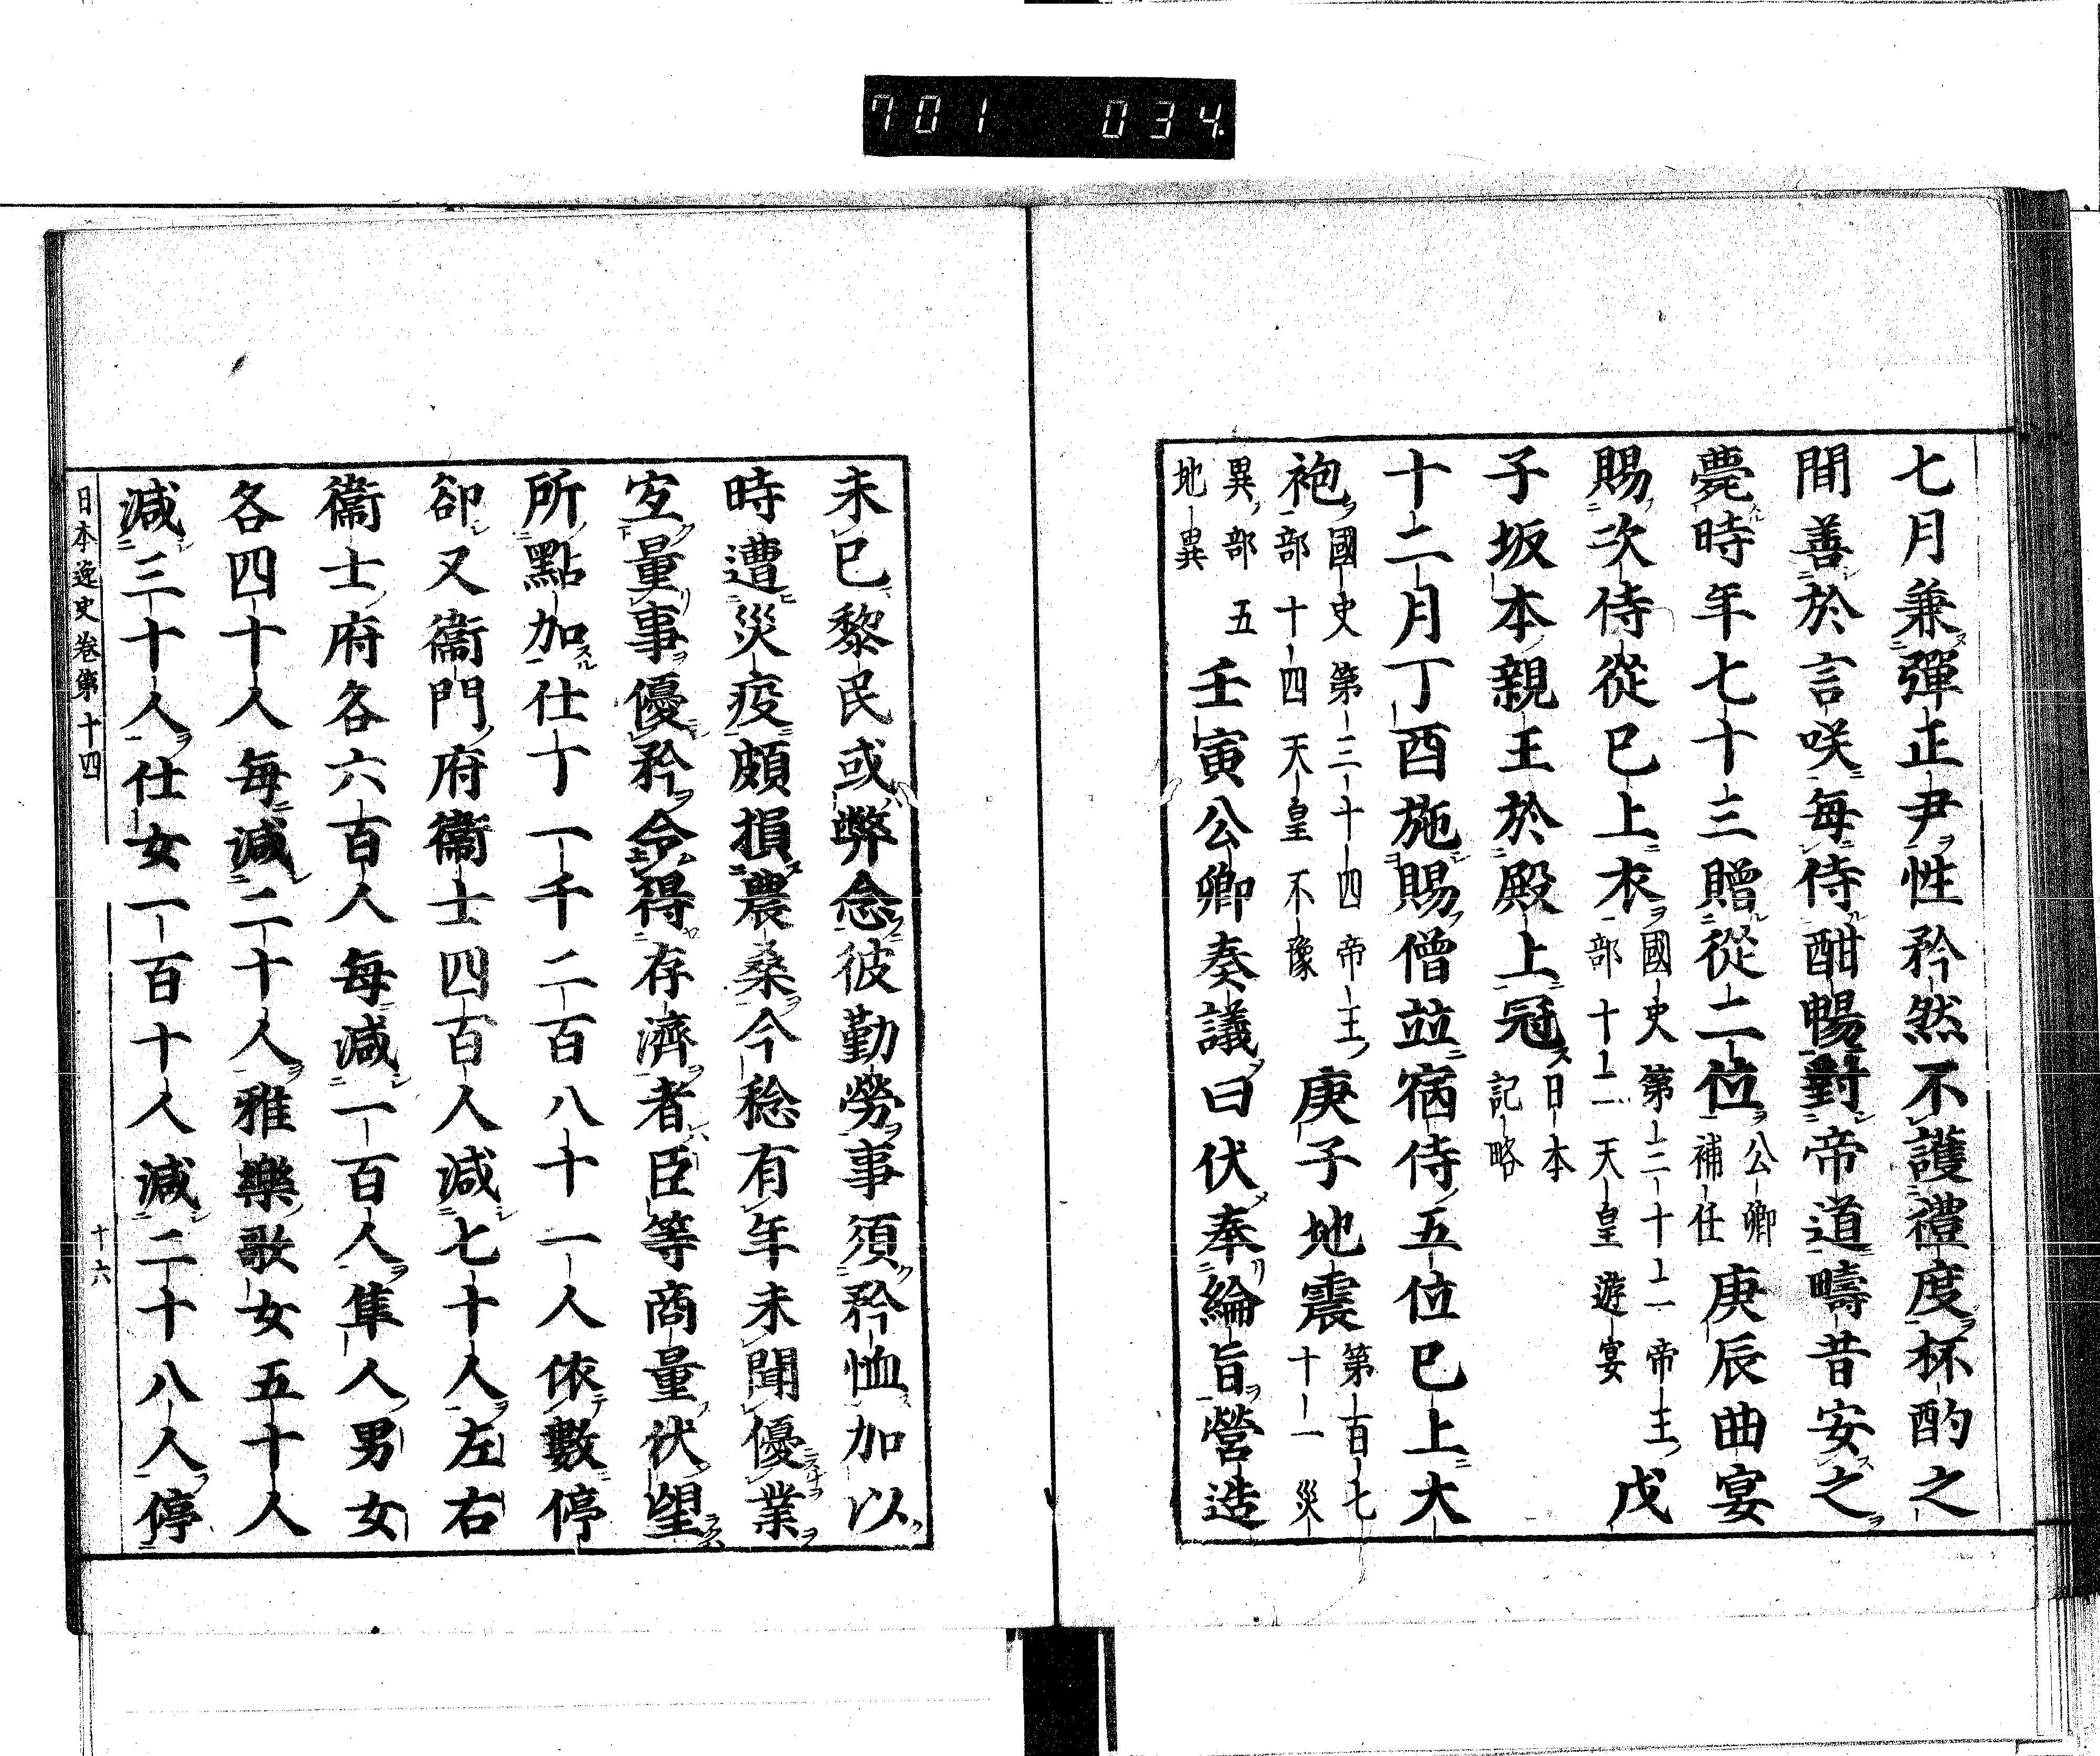 701 034
七月兼彈正尹性矜然不護禮度杯酌之
間善於言咲每侍酣暢對帝道疇昔安之
薨時年七十三贈從二位公卿補任庚辰曲宴
賜次侍從已上衣國史第三十二帝王部十二天皇遊宴戊
子坂本親王於殿上冠日本記略
十二月丁酉施賜僧並宿侍五位已上大
袍國史第三十四帝王部十四天皇不豫庚子地震第百七十一災
異部五地異壬寅公卿奏議曰伏奉綸旨營造
未已黎民或弊念彼勤勞事須矜恤加以
時遭災疫頗損農桑今稔有年未聞優業
宜量事優矜令得存濟者臣等商量伏望
所點加仕丁一千二百八十一人依數停
卻又衞門府衞士四百人減七十人左右
衞士府各六百人每減一百人隼人男女
各四十人每減二十人雅樂歌女五十人
減三十人仕女一百十人減二十八人停
日本逸史卷第十四 十六